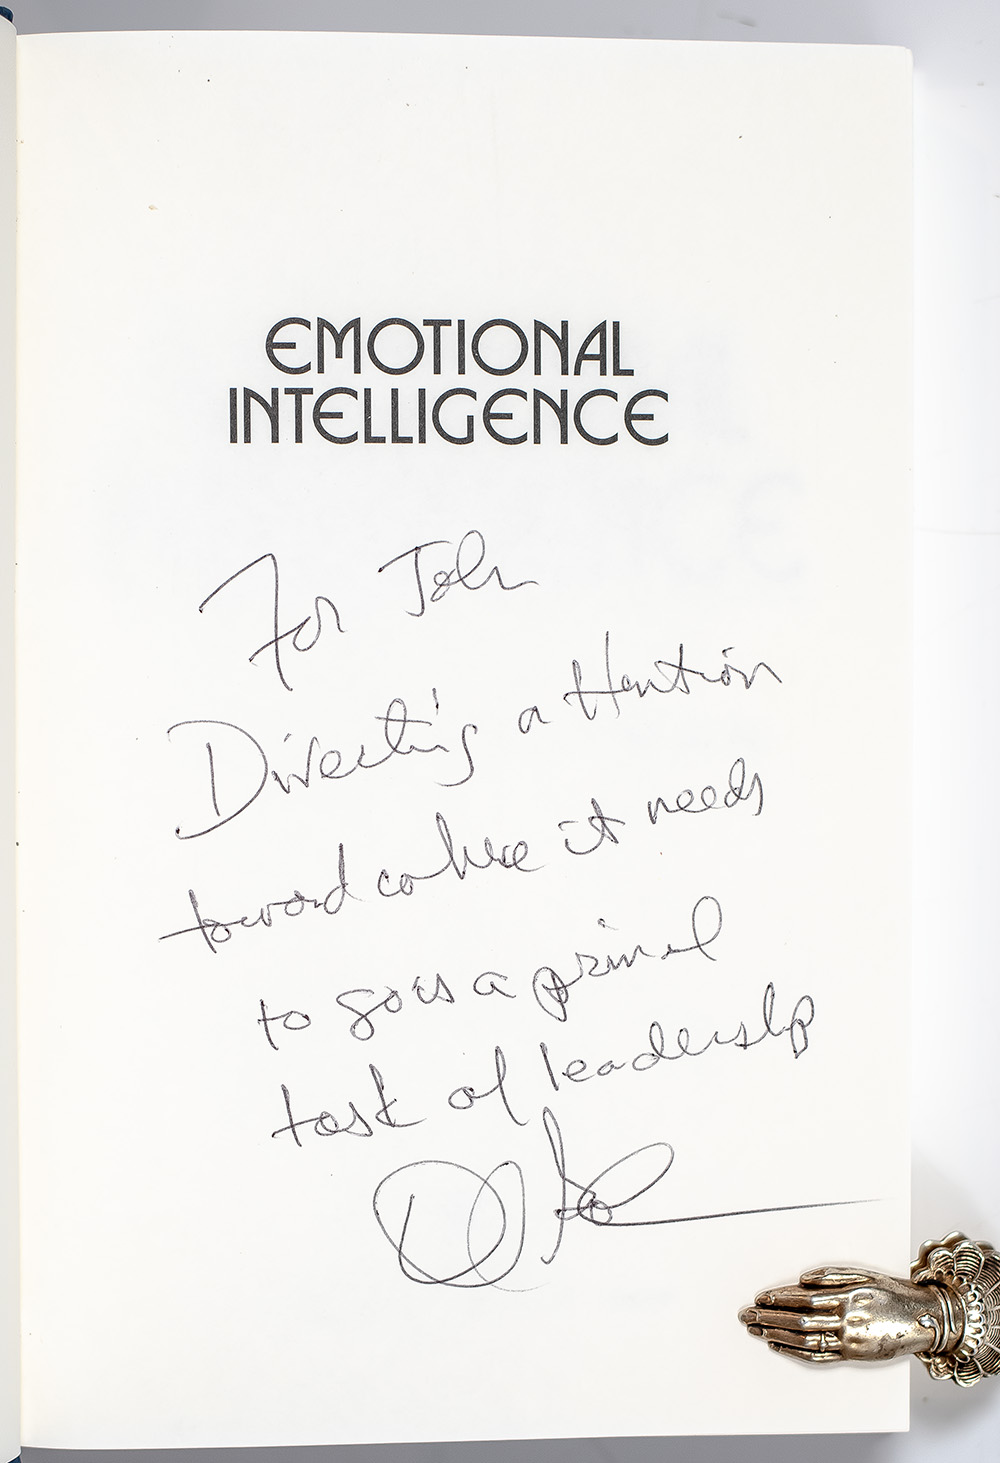 EMOTIONAL
INTELLIGENCE
For John
Directing attention
toward where it needs
to go is a primal
task of leadership